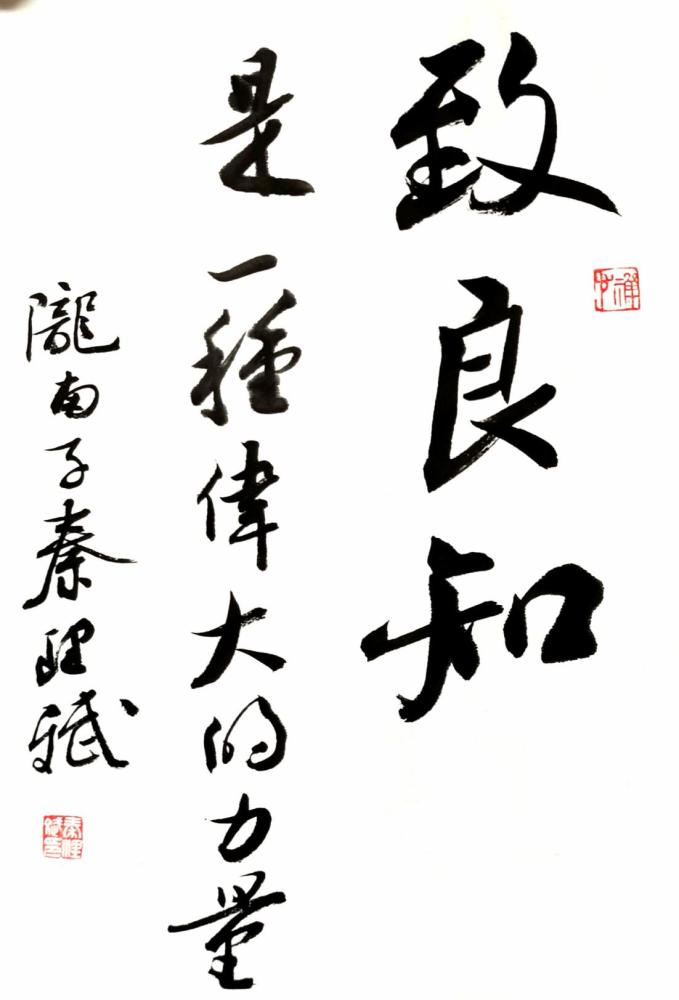 致良知
是一種偉大的力量
隴南子秦理斌